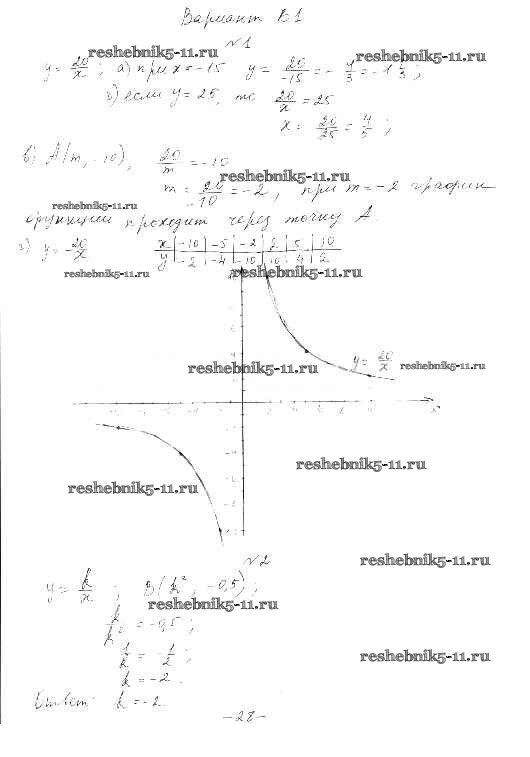 Вариант Б1
№1
reshebnik5-11.ru reshebnik5-11.ru
y = 20/x ; а) при x = -15 y = 20/-15 = - 4/3 = -1 1/3 ;
г) если y = 25, то 20/x = 25
x = 20/25 = 4/5 ;
в) A(m, -10), 20/m = -10
reshebnik5-11.ru
m = 20/-10 = -2, при m = -2 график
reshebnik5-11.ru
функции проходит через точку A.
г) y = -20/x
x | -10 | -5 | -2 | 2 | 5 | 10
y | -2 | -4 | -10 | 10 | 4 | 2
reshebnik5-11.ru reshebnik5-11.ru
y = 20/x
reshebnik5-11.ru reshebnik5-11.ru
x
reshebnik5-11.ru
reshebnik5-11.ru
№2
reshebnik5-11.ru
y = k/x ; B(k², -0,5) ;
reshebnik5-11.ru
k/k² = -0,5 ;
1/k = - 1/2 ;
reshebnik5-11.ru
k = -2 .
Ответ: k = -2.
-28-